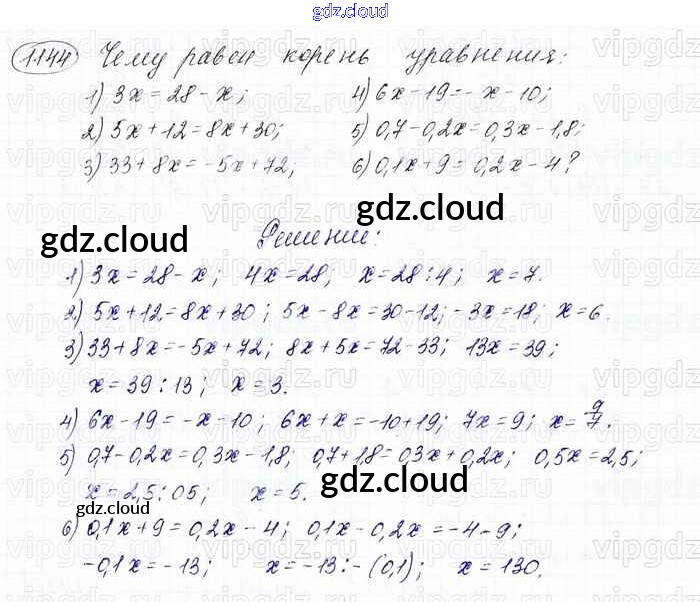 gdz.cloud
1144 Чему равен корень уравнения:
1) 3x = 28 - x; 4) 6x - 19 = - x - 10;
2) 5x + 12 = 8x + 30; 5) 0,7 - 0,2x = 0,3x - 1,8;
3) 33 + 8x = -5x + 72; 6) 0,1x + 9 = 0,2x - 4?
gdz.cloud
gdz.cloud
Решение:
1) 3x = 28 - x; 4x = 28; x = 28 : 4; x = 7.
2) 5x + 12 = 8x + 30; 5x - 8x = 30 - 12; - 3x = 18; x = 6.
3) 33 + 8x = -5x + 72; 8x + 5x = 72 - 33; 13x = 39;
x = 39 : 13; x = 3.
4) 6x - 19 = -x - 10; 6x + x = -10 + 19; 7x = 9; x = 9/7.
5) 0,7 - 0,2x = 0,3x - 1,8; 0,7 + 1,8 = 0,3x + 0,2x; 0,5x = 2,5;
x = 2,5 : 05; x = 5.
gdz.cloud
gdz.cloud
6) 0,1x + 9 = 0,2x - 4; 0,1x - 0,2x = -4 - 9;
-0,1x = -13; x = -13 : - (0,1); x = 130.